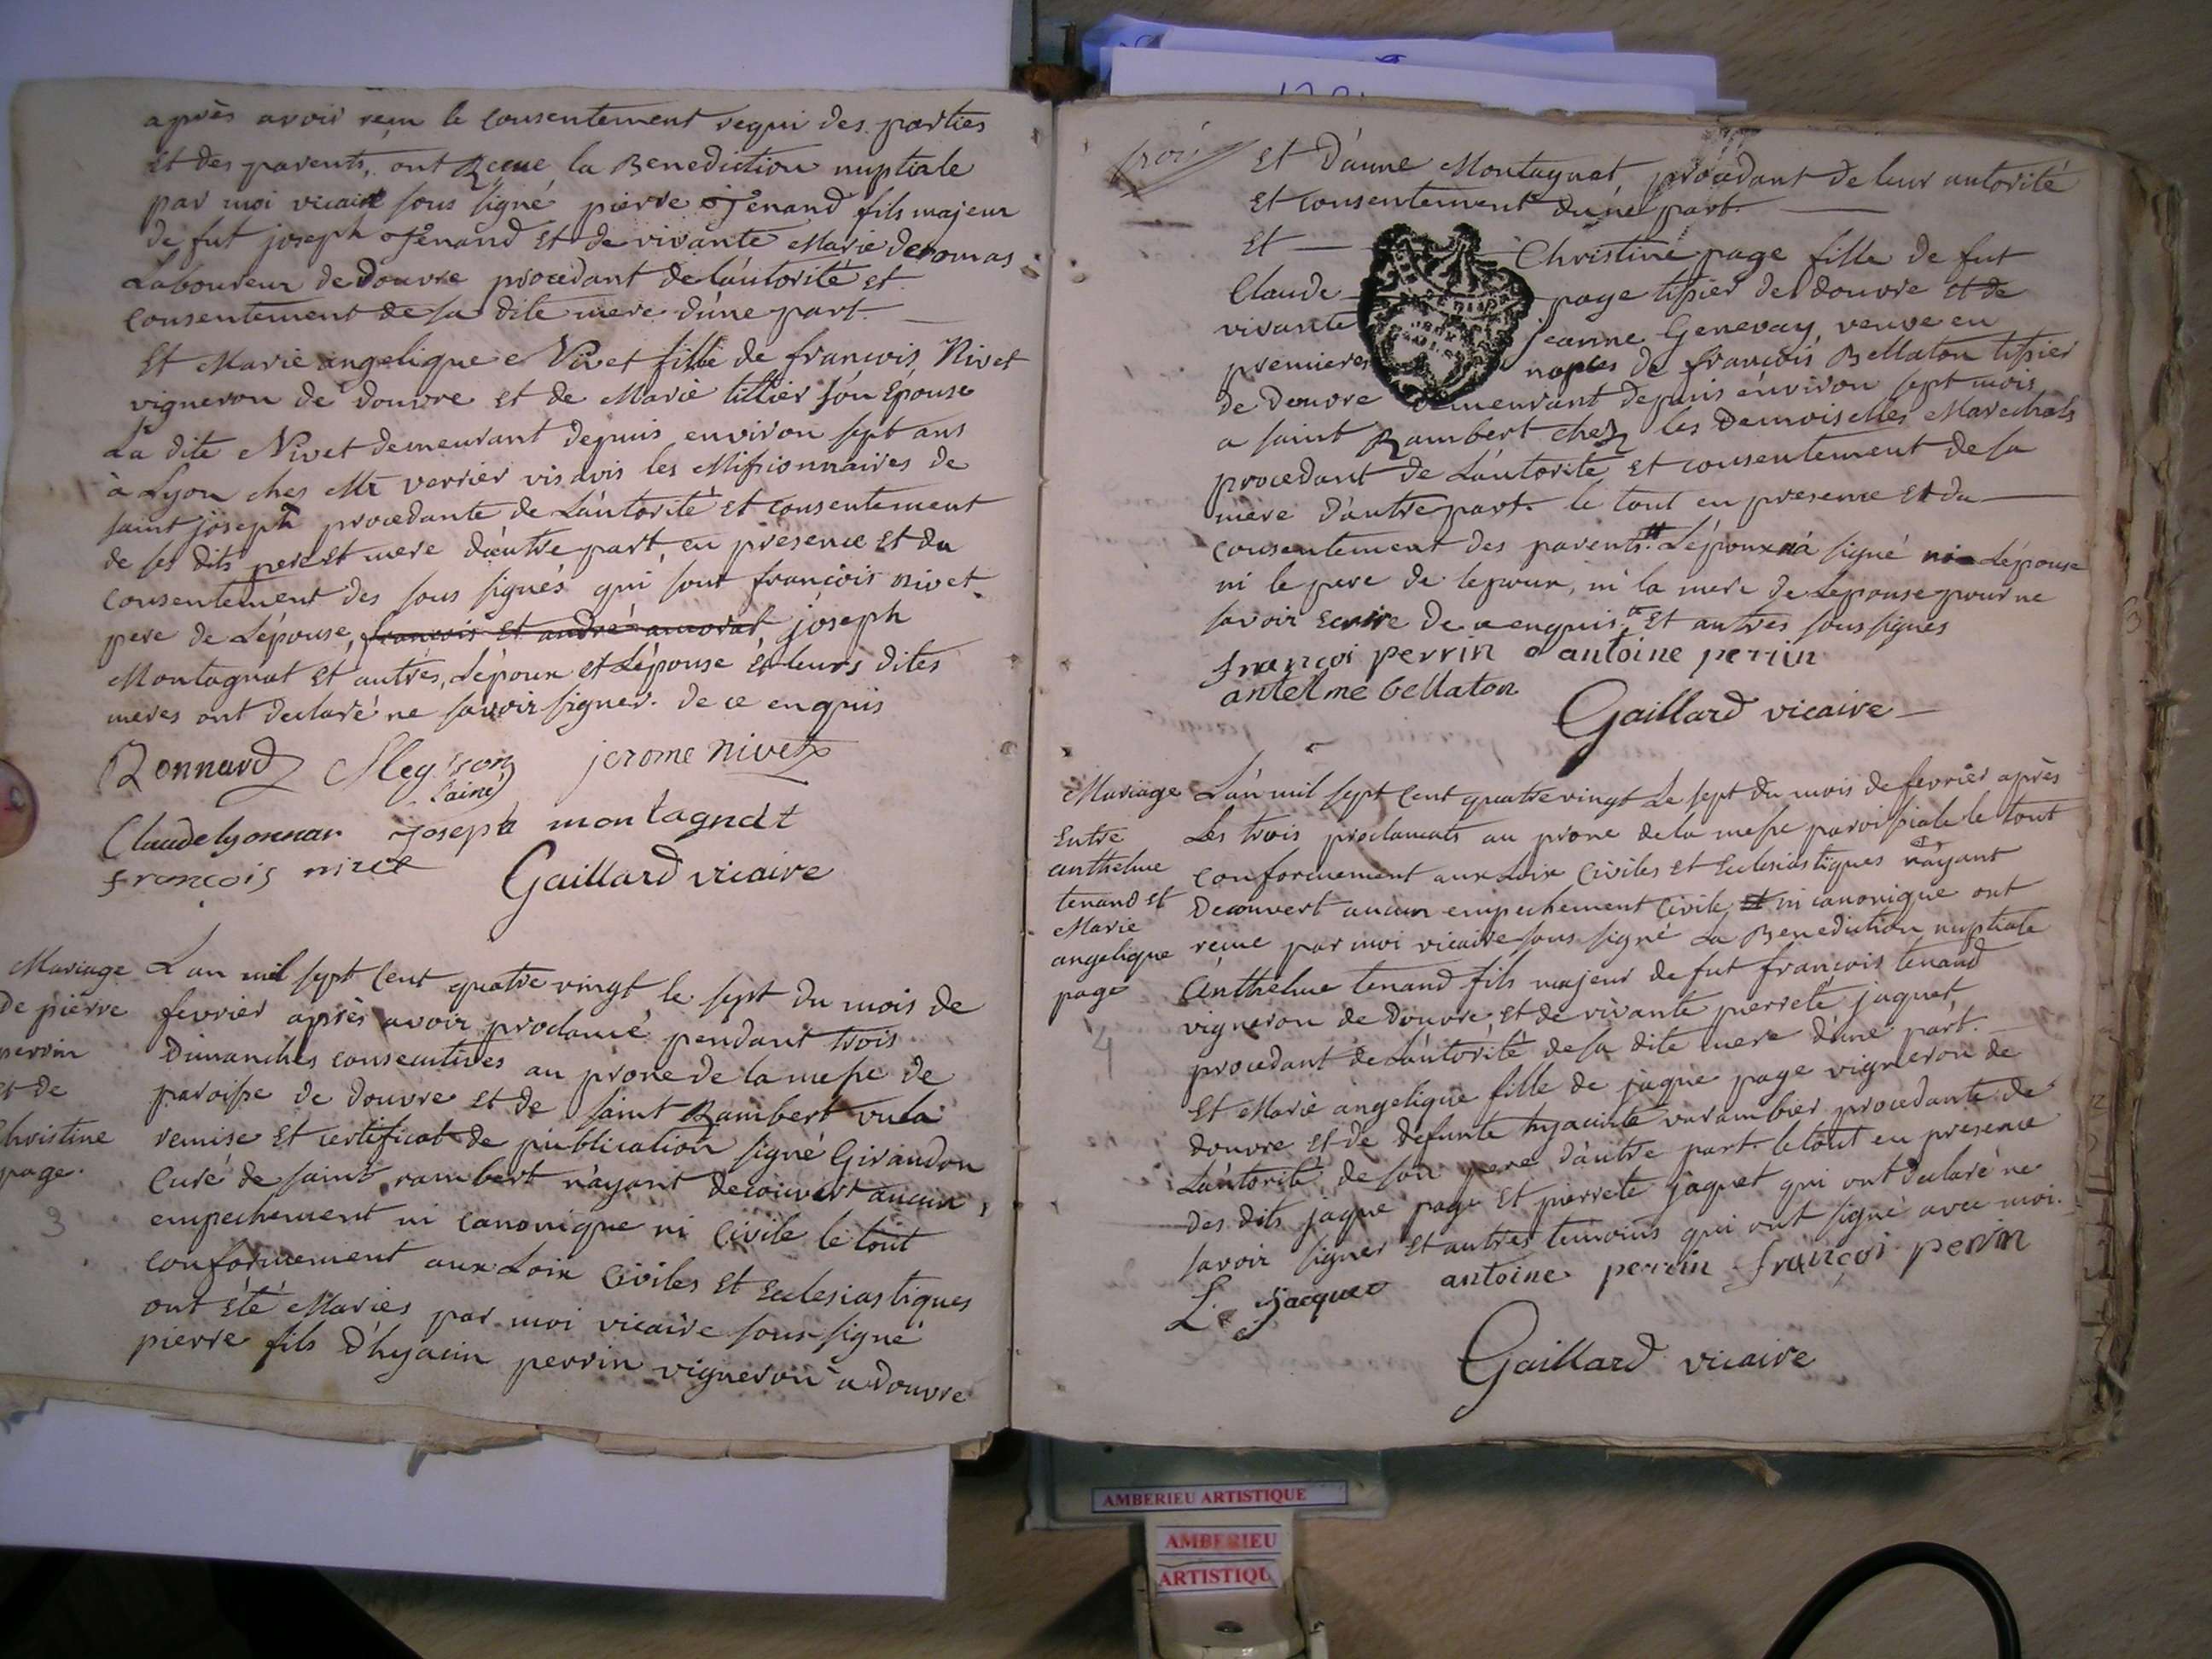 après avoir reçu le consentement requi des parties
et des parents, ont Reçue la Benediction nuptiale
par moi vicaire sous signé pierre tenand fils majeur
de fut joseph tenand et de vivante Marie deromas
Laboureur de Douvre procedant de láutorité et
consentement de sa dite mere d'úne part.
et Marie angelique Nivet fille de francois Nivet
vigneron de Douvre et de Marie tillier son Epouse
La dite Nivet demeurant depuis environ sept ans
à Lyon ches Mr verrier vis avis les Missionnaires de
saint joseph procedante de Láutorité et consentement
de ses dits pere et mere dáutre part, en presence et du
consentement des sous signés qui sont françois nivet
pere de Lépouse, francois et andré joseph
Montagnat et autres, Lépoux et Lépouse et leurs dites
meres ont declaré ne savoir signer. de ce enquis
Bonnard jerome nivet
L'ainé
Claude lyonnar joseph montagnat
françois nivet Gaillard vicaire
Mariage
De pierre
perrin
et de
Christine
page.
3
L'an mil sept Cent quatre vingt le sept du mois de
fevrier après avoir proclamé pendant trois
Dimanches consecutives au prone de la messe de
paroisse de Douvre et de saint Rambert vu la
remise et certificat de publication signé Giraudon
Curé de saint rambert n'áyant decouvert aucun
empechement ni canonique ni Civile le tout
conformement aux Loix Civiles et Ecclesiastiques
ont été Mariés par moi vicaire sous signé
pierre fils d'hyacin perrin vigneron a Douvre
troi
et D'anne Montagnat procedant de leur autorité
et consentement d'une part.
et Christine page fille de fut
Claude page tissier de Douvre et de
vivante jeanne Genevay veuve en
premieres nopces de françois Bellaton tissier
de Douvre demeurant depuis environ sept mois
a saint Rambert chez les Demoiselles Marechals
procedant de Láutorité et consentement de sa
mere dáutre part. le tout en presence et du
consentement des parents. Lépoux ná signé ni Lépouse
ni le pere de lepoux, ni la mere de Lepouse pour ne
savoir ecrire de ce enquis, et autres sous signés
françoi perrin antoine perrin
antelme bellaton
Gaillard vicaire
Mariage
Entre
anthelme
tenand et
Marie
angelique
page
4
L'an mil sept Cent quatre vingt Le sept du mois de fevrier après
Les trois proclamats au prone de la messe paroissiale le tout
conformement aux Loix Civiles et Ecclesiastiques náyant
Decouvert aucun empechement Civile et ni canonique ont
reçue par moi vicaire sous signé La Benediction nuptiale
Anthelme tenand fils majeur de fut françois tenand
vigneron de Douvre et de vivante pierrete jaquet,
procedant de Láutorité de sa dite mere dúne part.
et Marie angelique fille de jaque page vigneron de
Douvre et de defunte hyacinte varambier procedante de
Láutorité de son pere dáutre part. le tout en presence
des dits jaque page et pierrete jaquet qui ont declaré ne
savoir signer et autres temoins qui ont signé avec moi.
L. Jacquet antoine perrin françoi perrin
Gaillard vicaire
AMBERIEU ARTISTIQUE
AMBERIEU
ARTISTIQU